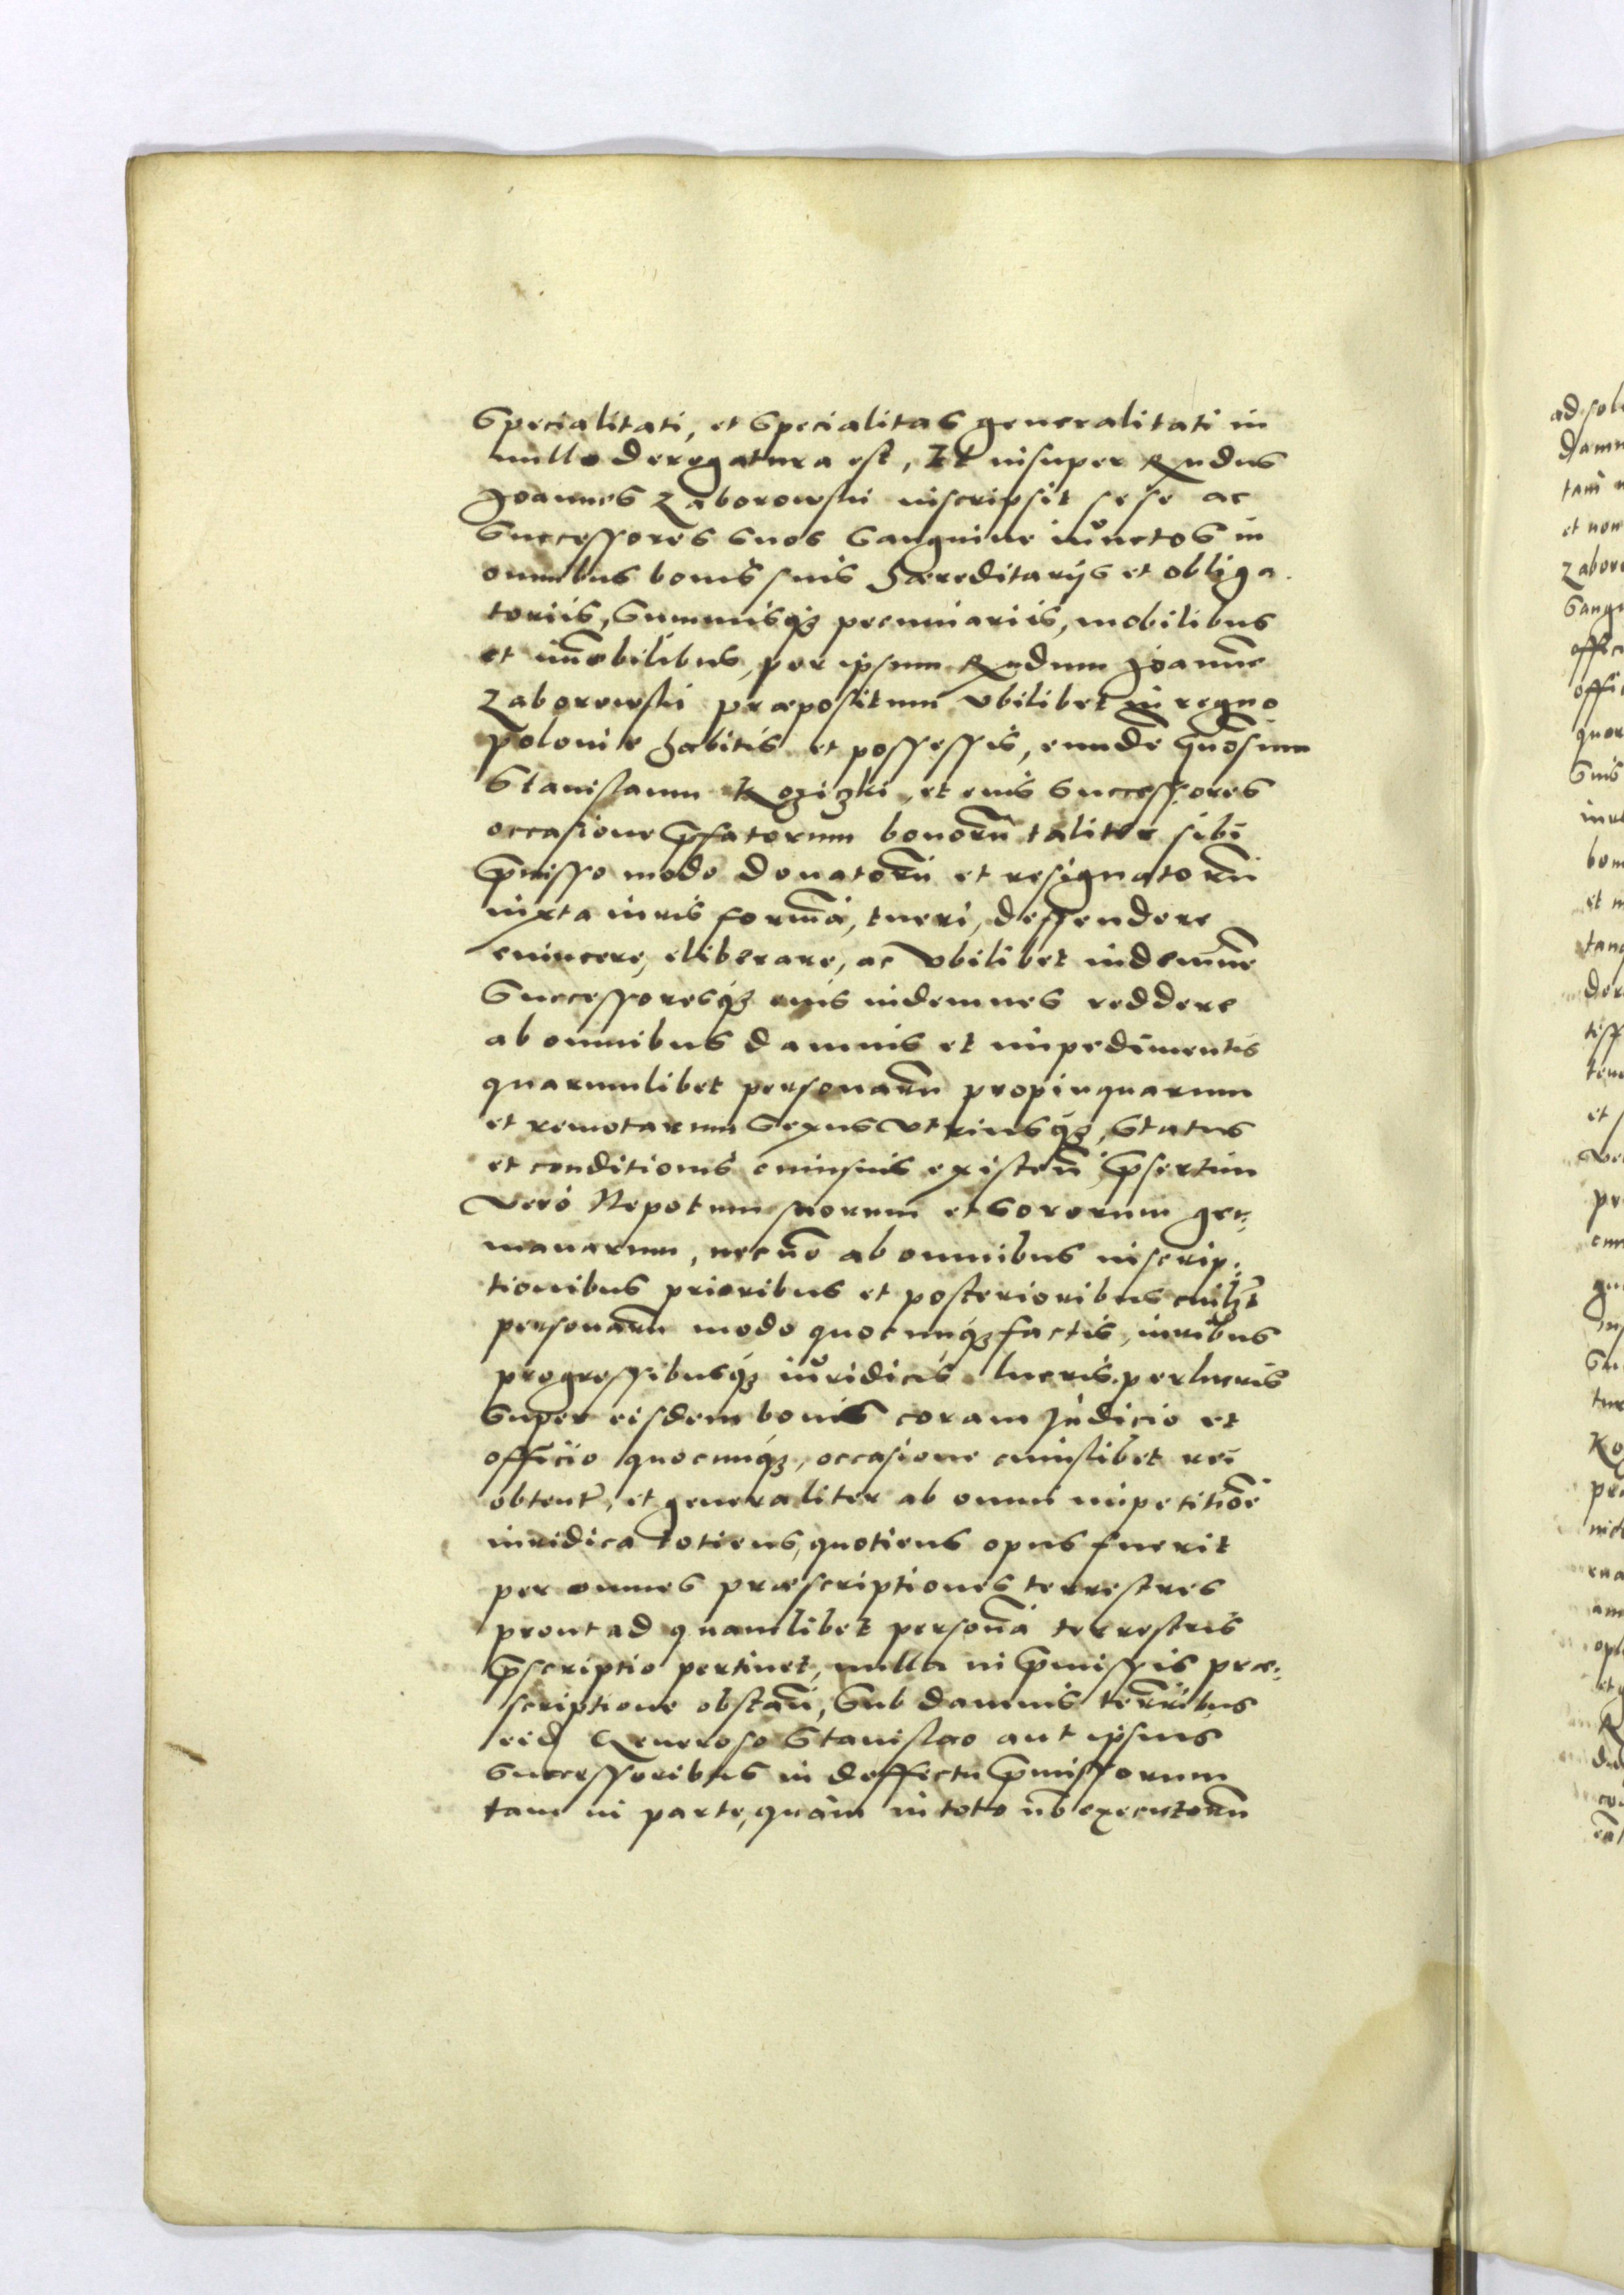 Specialitati, et Specialitas generalitati in
nullo derogatura est, Et insuper Rndus
Joannes Zaborowski inscripsit sese ac
Successores suos Sanguine iunctos in
omnibus bonis suis hæreditarijs et obliga
toriis, Summisq3 pecuniariis, mobilibus
et im̃obilibus, per ipsum Rndum Joannē
Zaborowski præpositum Vbilibet in regno
Poloniæ habitis et possessis, eundē Gñosum
Stanislaum Koziczki, et eius Successores
occasione p̃fatorum bonorū taliter sibi
p̃misso modo donatorū et resignatorū
iuxta iuris formā, tueri, deffendere
euincere, eliberare, ac Vbilibet indemnē
Successoresq3 eius indemnes reddere
ab omnibus damnis et impedimentis
quarumlibet personarū propinquarum
et remotarum Sexus Vtriusq3, Status
et conditionis cuiusuis existeñ p̃sertim
Vero Nepotum suorum et Sororum ger:
manarum, necnō ab omnibus inscrip:
tionibus prioribus et posterioribus
personarū modo quocunq3 factis, iuribus
progressibusq3 iuridicis lucris, perlucris
Super eisdem bonis coram Judicio et
officio quocunq3, occasione cuiuslibet rei
obtent̃, et generaliter ab omni impetitiōe
iuridica totiens, quotiens opus fuerit
per omnes præscriptiones terrestres
prout ad quamlibet personā terrestris
p̃scriptio pertinet, nulla in p̃missis præ:
scriptione obstañ, Sub damnis terr̃ribus
eid Generoso Stanislao aut ipsius
Successoribus in deffectu p̃missorum
tam in parte, quàm in toto nō executorū